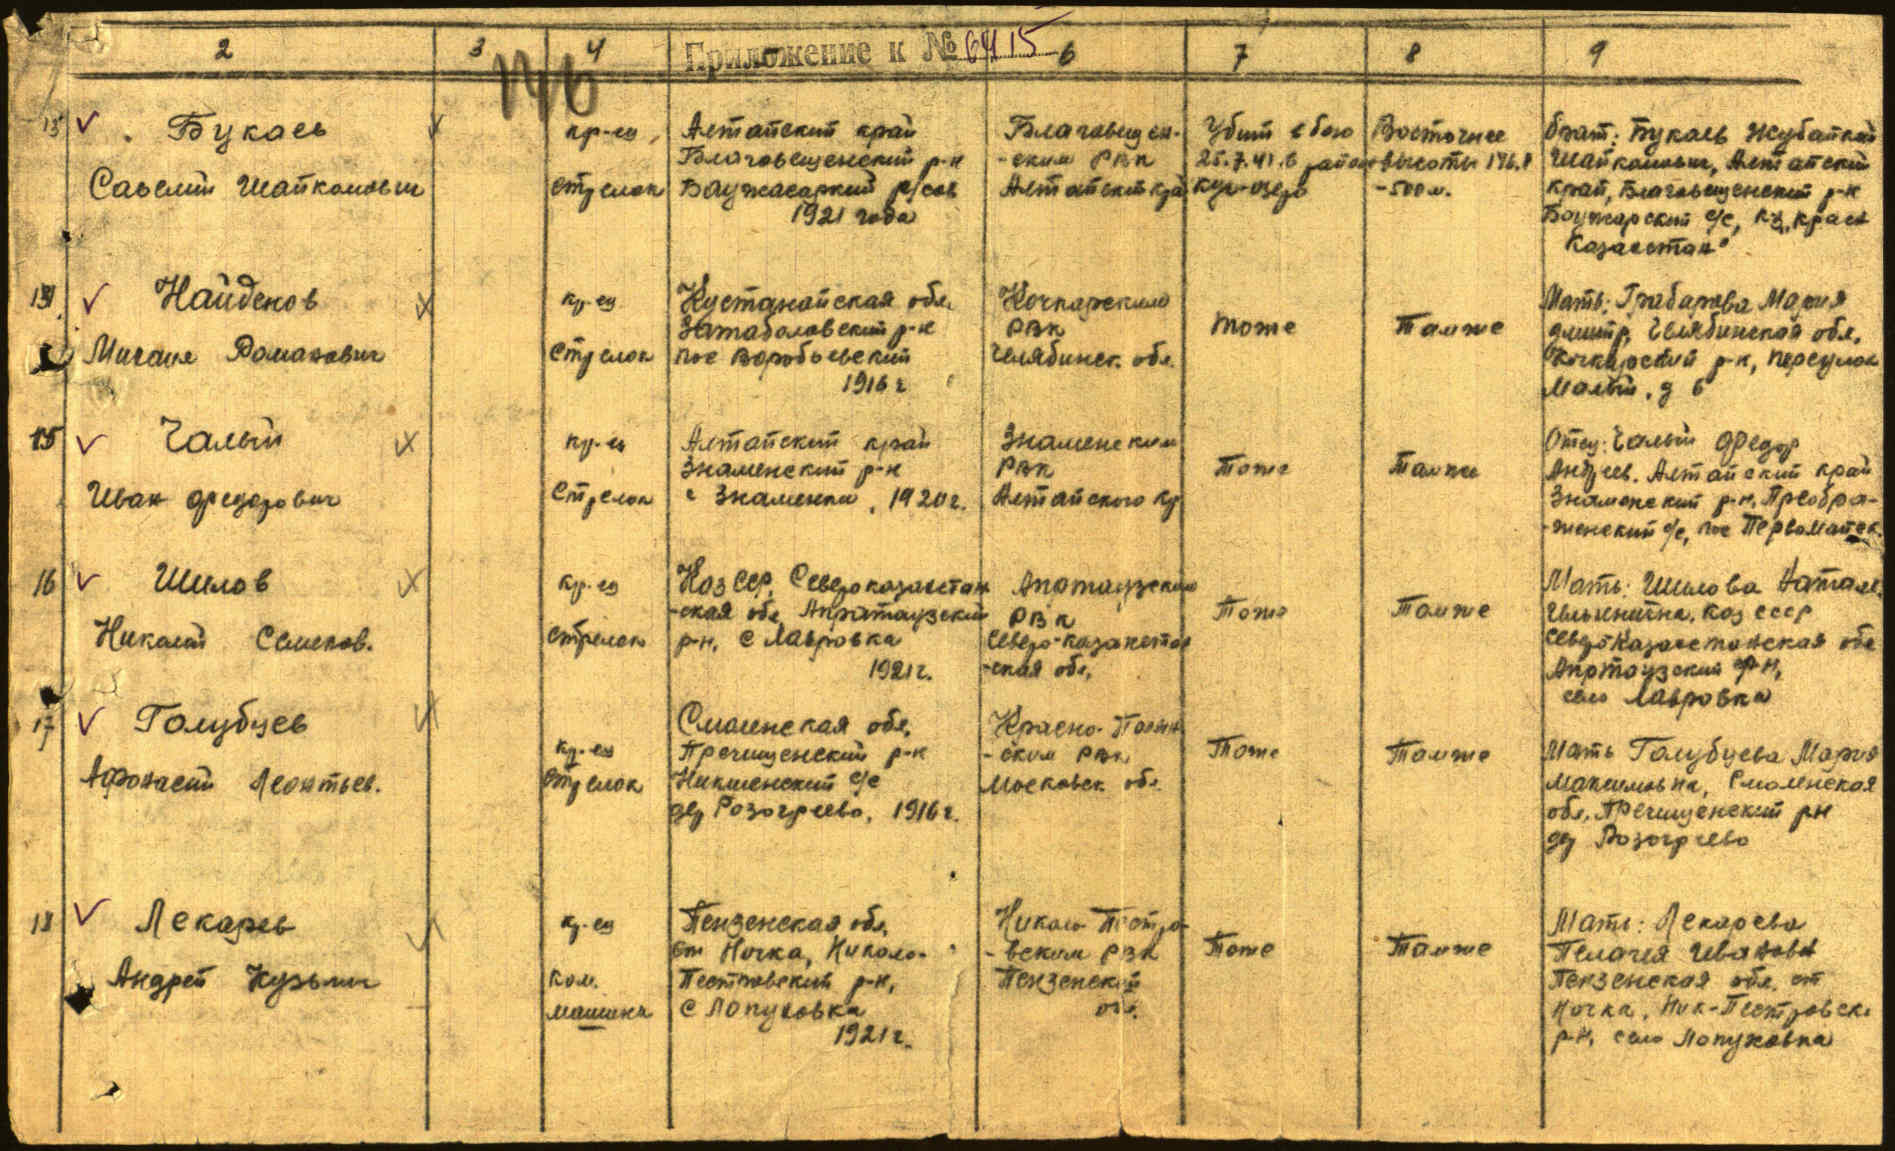 2 3 4 6 7 8 9
146
Приложение к № 6415
Букаев
Савелий Шайкамович
кр-ец
стрелок
Алтайский край
Благовещенский р-н
1921 года
Благовещен-
-ским РВК
Алтайский кра
Убит в бою
25.7.41. в район
Восточнее
высоты 176.8
-500 м.
брат: Букаев
Алтайский
край, Благовещенский р-н
с/с, кз. "красн
Казахстан"
Найденов
Михаил Романович
кр-ец
Стрелок
Кустанайская обл.
Затабаловский р-н
пос Воробьевский
1916 г
Кочкарским
РВК
Челябинск. обл.
тоже
Тамже
Мать: Грабарова Мария
Дмитр, Челябинская обл.
Кочкарский р-н, переулок
Малый, д 6
15
Чалый
Иван Фредорович
кр-ец
Стрелок
Алтайский край
Знаменский р-н
с Знаменка, 1920 г.
Знаменским
РВК
Алтайского кр
Тоже
Тамже
Отец: Чалый Фредор
Андреев. Алтайский край
Знаменский р-н, Преобра-
-женский с/с, пос Первомайск.
16
Шилов
Николай Семенов.
кр-ец
стрелок
Каз ССР, Северо казахстан
-ская обл Аиртаузский
р-н, с Лавровка
1921 г.
Аиртаузским
РВК
Северо-казахстан
-ская обл,
Тоже
Тамже
Мать: Шилова Натал.
Ильинична. Каз СССР
Северо Казахстанская обл
Аиртаузский р-н,
село Лавровка
17
Голубцев
Афонасий Леонтьев.
кр-ец
стрелок
Смоленская обл,
Пречищенский р-н
с/с
дер Розогреево, 1916 г.
Красно-Полян
-ским РВК
Московск обл.
Тоже
Тамже
Мать Голубцева Мария
Максимовна, Смоленская
обл, Пречищенский рн
др Розогреево
18
Лекарев
Андрей Кузьмич
кр-ец
ком.
машины
Пензенская обл,
ст Ночка, Николо-
Пестровский р-н,
с Лопуховка
1921 г.
Николо Пестро-
-вским РВК
Пензенской
обл.
Тоже
Тамже
Мать: Лекарева
Пелагея Ивановн
Пензенская обл, ст
Ночка, Ник-Пестровск.
р-н, село Лопуховка